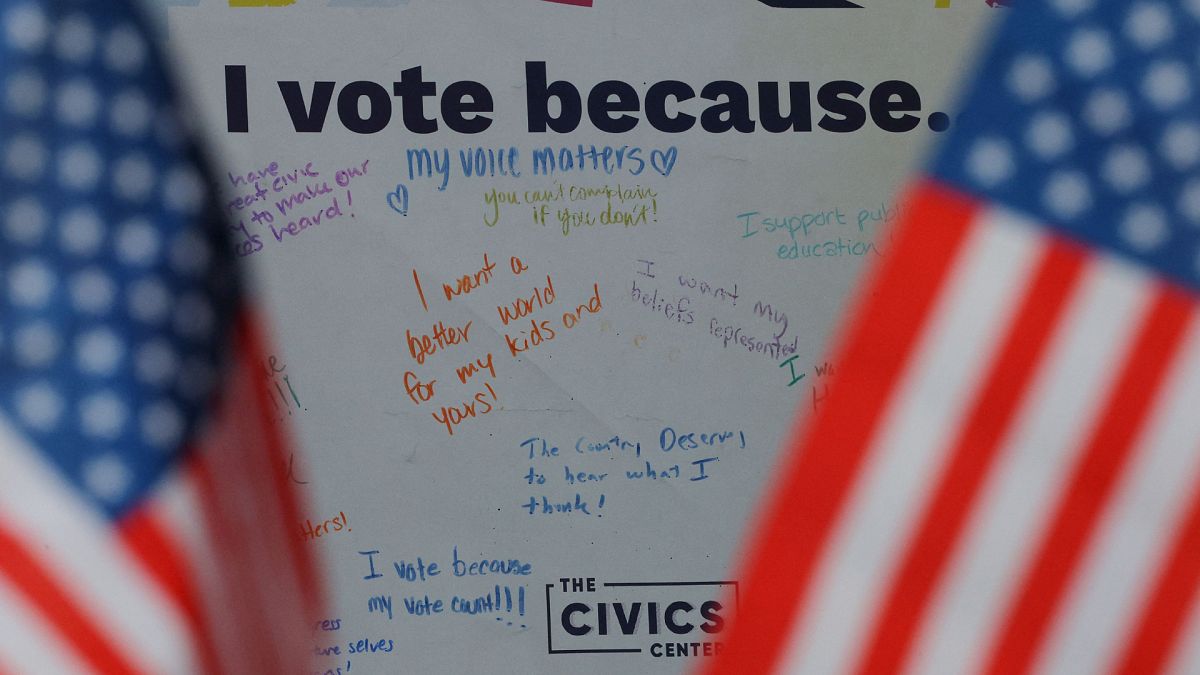 I vote because.
my voice matters
have
civic
to make our
heard!
you can't complain
if you don't!
I support
education
I want a
better world
for my kids and
yours!
I want my
beliefs represented
I
The Country Deserves
to hear what I
think!
I vote because
my vote count!!!
selves
THE
CIVICS
CENTER